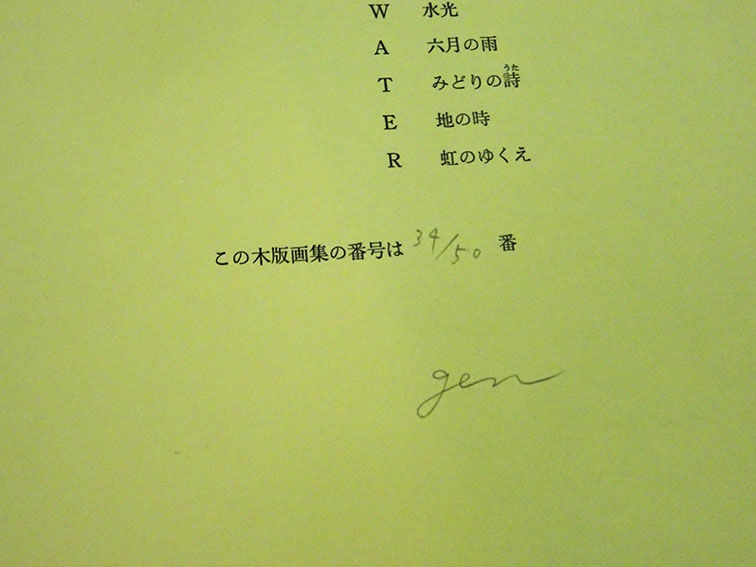 W 水光
A 六月の雨
T みどりの詩
E 地の時
R 虹のゆくえ
この木版画集の番号は 34/50 番
gen